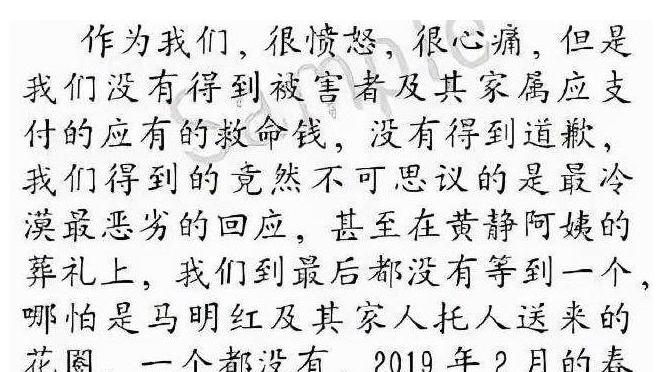 作为我们，很愤怒，很心痛，但是
我们没有得到被害者及其家属应支
付的应有的救命钱，没有得到道歉，
我们得到的竟然不可思议的是最冷
漠最恶劣的回应，甚至在黄静阿姨的
葬礼上，我们到最后都没有等到一个，
哪怕是马明红及其家人托人送来的
花圈，一个都没有。2019年2月的春
Sample